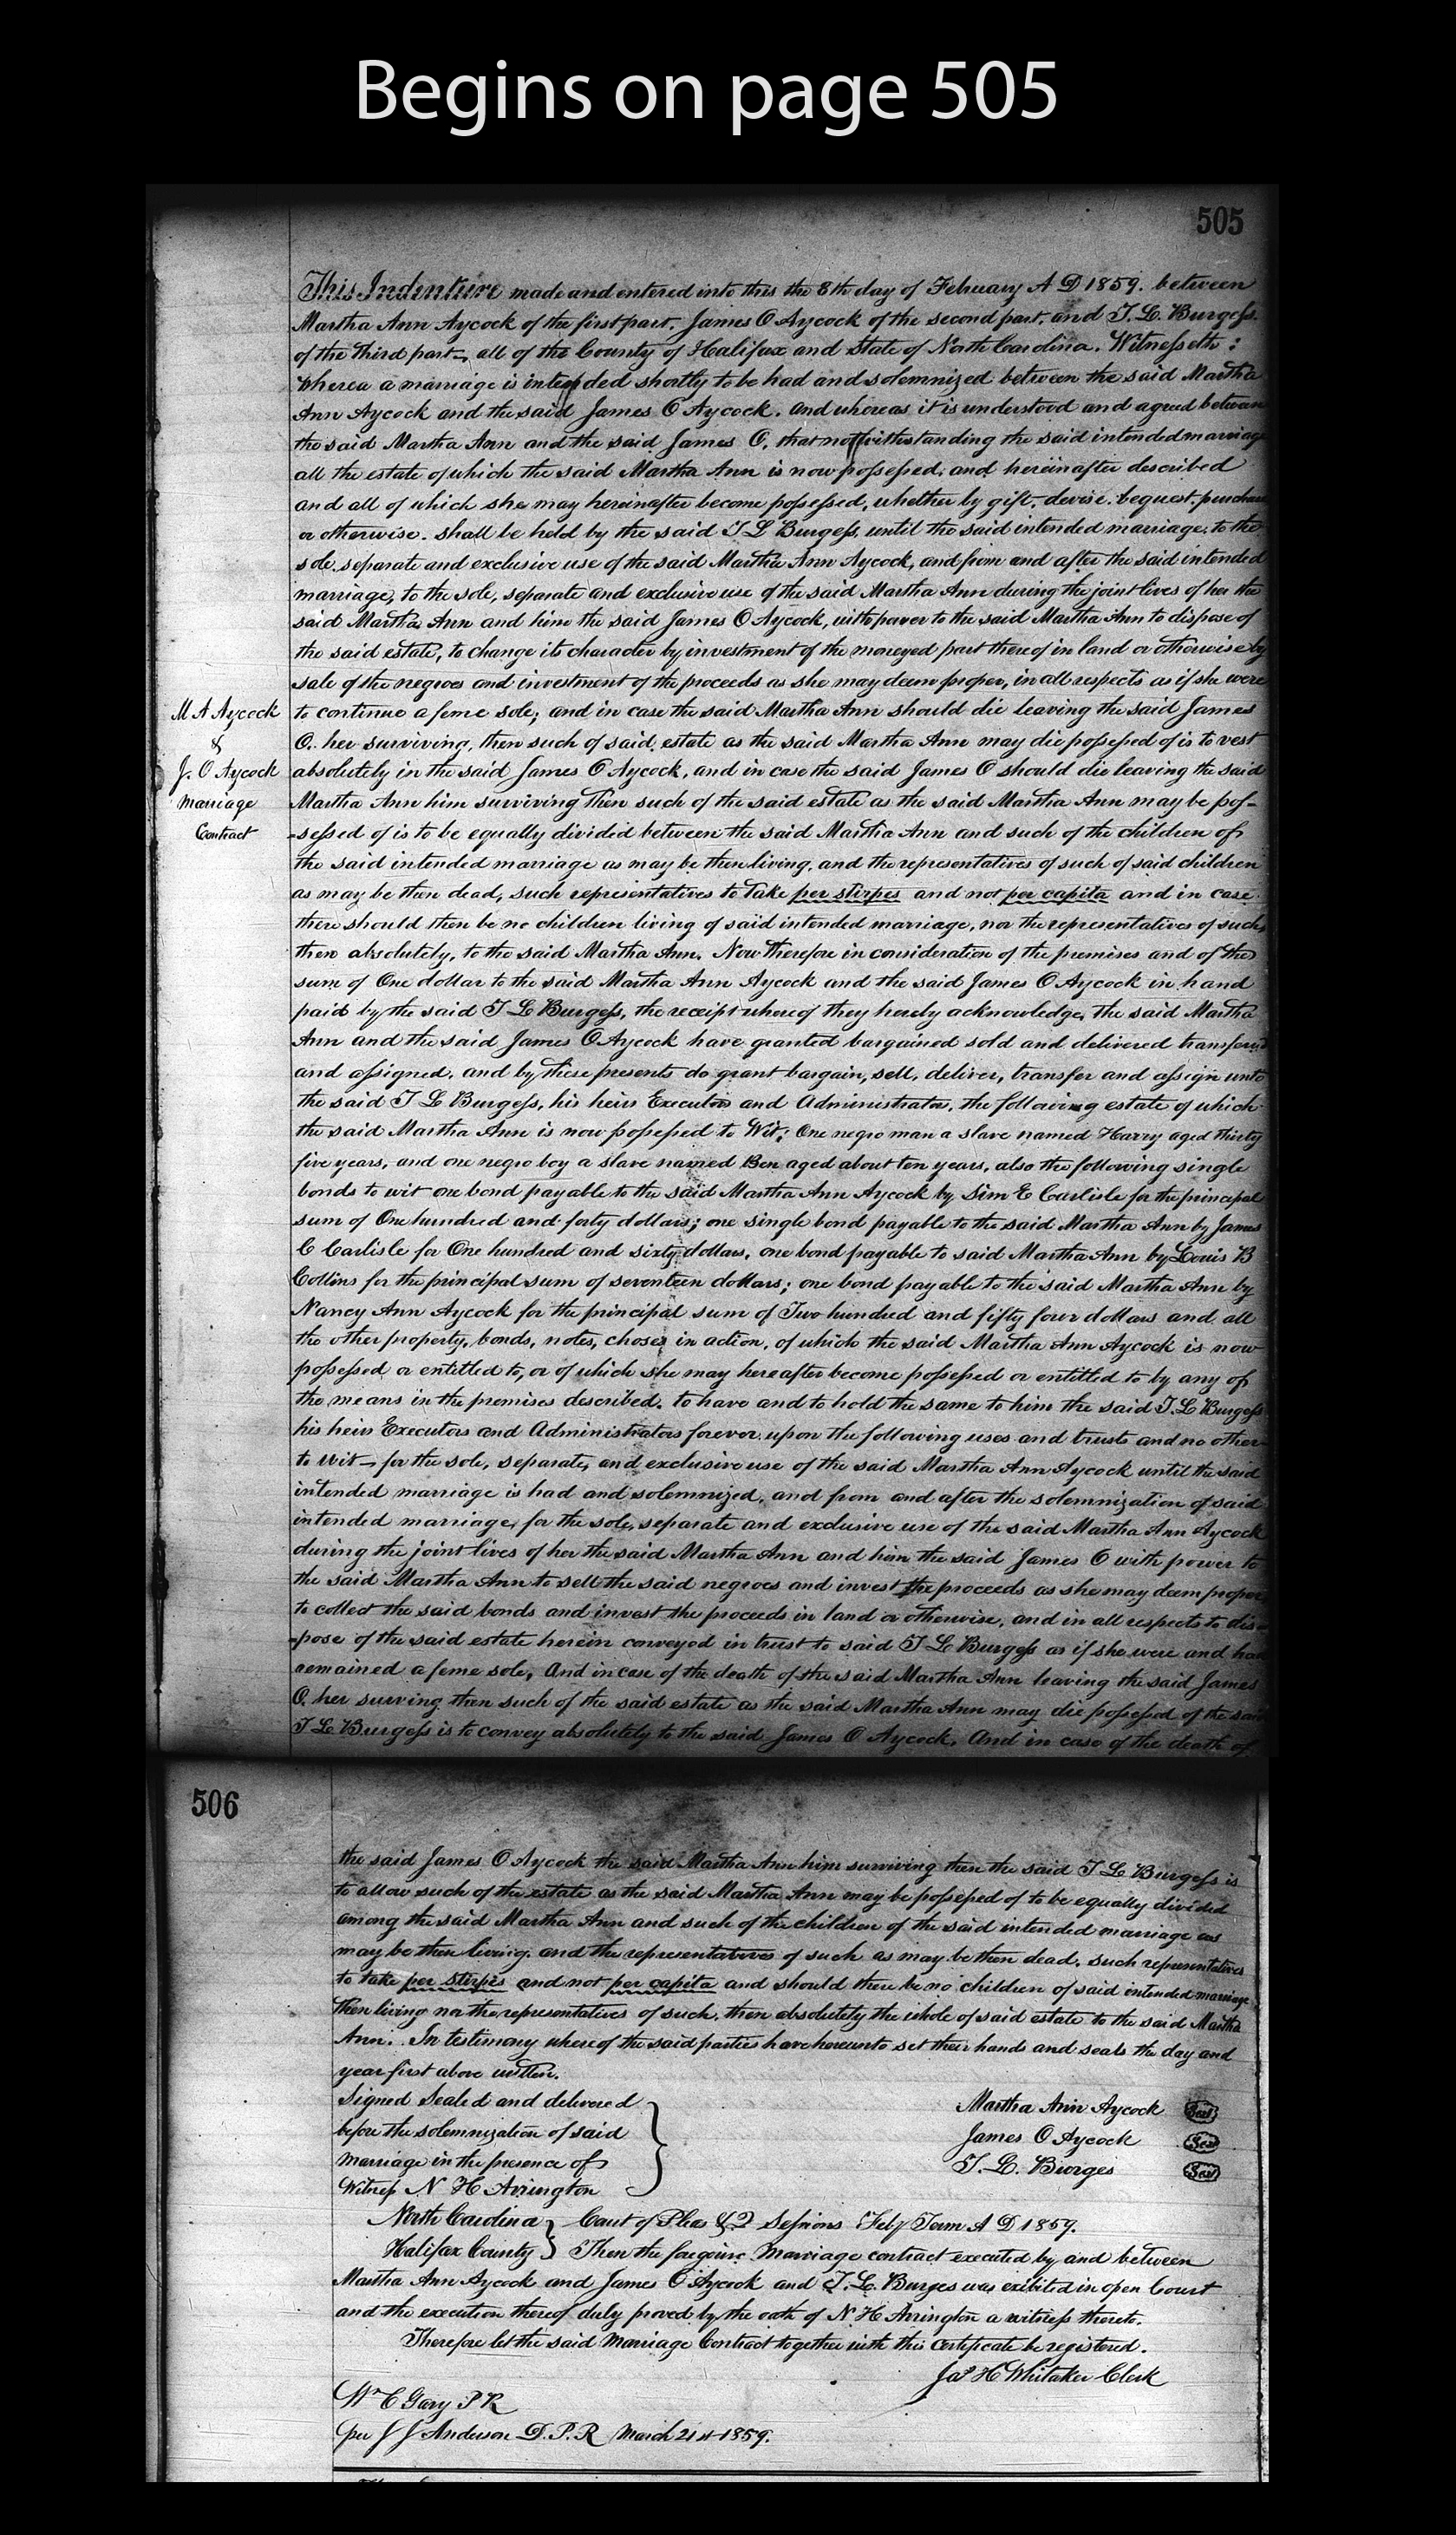 Begins on page 505
505
This Indenture made and entered into this the 8th day of February A D 1859. between
Martha Ann Aycock of the first part. James O Aycock of the second part. and T. L. Burgess.
of the third part, all of the County of Halifax and State of North Carolina. Witnesseth:
Wherea a marriage is intended shortly to be had and solemnized between the said Martha
Ann Aycock and the said James O Aycock. And whereas it is understood and agreed between
the said Martha Ann and the said James O. that notwithstanding the said intended marriage
all the estate of which the said Martha Ann is now possessed, and hereinafter described
and all of which she may hereinafter become possessed, whether by gift, devise, bequest, purchase
or otherwise. shall be held by the said T L Burgess, until the said intended marriage, to the
sole, separate and exclusive use of the said Martha Ann Aycock, and from and after the said intended
marriage, to the sole, separate and exclusive use of the said Martha Ann during the joint lives of her the
said Martha Ann and him the said James O Aycock, with power to the said Martha Ann to dispose of
the said estate, to change its character by investment of the moneyed part thereof in land or otherwise by
sale of the negroes and investment of the proceeds as she may deem proper, in all respects as if she were
M A Aycock
&
J. O Aycock
marriage
Contract
to continue a feme sole; and in case the said Martha Ann should die leaving the said James
O. her surviving, then such of said estate as the said Martha Ann may die possessed of is to vest
absolutely in the said James O Aycock, and in case the said James O should die leaving the said
Martha Ann him surviving then such of the said estate as the said Martha Ann may be pos-
-sessed of is to be equally divided between the said Martha Ann and such of the children of
the said intended marriage as may be then living, and the representatives of such of said children
as may be then dead, such representatives to take per stirpes and not per capita and in case
there should then be no children living of said intended marriage, nor the representatives of such,
then absolutely, to the said Martha Ann. Now therefore in consideration of the premises and of the
sum of One dollar to the said Martha Ann Aycock and the said James O Aycock in hand
paid by the said T L Burgess, the receipt whereof they hereby acknowledge, the said Martha
Ann and the said James O Aycock have granted bargained sold and delivered transferred
and assigned, and by these presents do grant bargain, sell, deliver, transfer and assign unto
the said T L Burgess, his heirs Executors and Administrator, the following estate of which
the said Martha Ann is now possessed to Wit; One negro man a slave named Harry aged thirty
five years, and one negro boy a slave named Ben aged about ten years, also the following single
bonds to wit one bond payable to the said Martha Ann Aycock by Sim E Carlisle for the principal
sum of One hundred and forty dollars; one single bond payable to the said Martha Ann by James
C Carlisle for One hundred and sixty dollars, one bond payable to said Martha Ann by Louis B
Collins for the principal sum of seventeen dollars; one bond payable to the said Martha Ann by
Nancy Ann Aycock for the principal sum of Two hundred and fifty four dollars and all
the other property, bonds, notes, choses in action, of which the said Martha Ann Aycock is now
possessed or entitled to, or of which she may hereafter become possessed or entitled to by any of
the means in the premises described. to have and to hold the same to him the said T. L Burgess
his heirs Executors and Administrators forever. upon the following uses and trusts and no other
to wit, for the sole, separate, and exclusive use of the said Martha Ann Aycock until the said
intended marriage is had and solemnized, and from and after the solemnization of said
intended marriage, for the sole, separate and exclusive use of the said Martha Ann Aycock
during the joint lives of her the said Martha Ann and him the said James O with power to
the said Martha Ann to sell the said negroes and invest the proceeds as she may deem proper,
to collect the said bonds and invest the proceeds in land or otherwise, and in all respects to dis-
-pose of the said estate herein conveyed in trust to said T L Burgess as if she were and had
remained a feme sole, And in case of the death of the said Martha Ann leaving the said James
O. her surving then such of the said estate as the said Martha Ann may die possessed of the said
T L Burgess is to convey absolutely to the said James O Aycock. And in case of the death of
506
the said James O Aycock the said Martha Ann him surviving then the said T L Burgess is
to allow such of the estate as the said Martha Ann may be possessed of to be equally divided
among the said Martha Ann and such of the children of the said intended marriage as
may be then living. and the representatives of such as may be then dead, such representatives
to take per stirpes and not per capita and should there be no children of said intended marriage
then living nor the representatives of such, then absolutely the whole of said estate to the said Martha
Ann. In testimony whereof the said parties have hereunto set their hands and seals the day and
year first above written.
Signed Sealed and delivered
before the solemnization of said
marriage in the presence of
Witness N H Arrington
Martha Ann Aycock Seal
James O Aycock Seal
T. L. Burges Seal
North Carolina } Court of Pleas & Q Sessions Feby Term A D 1859.
Halifax County } Then the foregoing Marriage contract executed by and between
Martha Ann Aycock and James O Aycock and T. L. Burges was exibited in open Court
and the execution thereof duly proved by the oath of N H Arrington a witness thereto.
Therefore let the said Marriage Contract together with this certificate be registered.
Jas H Whitaker Clerk
Wm C Gary P R
per J J Anderson D. P. R March 21st 1859.